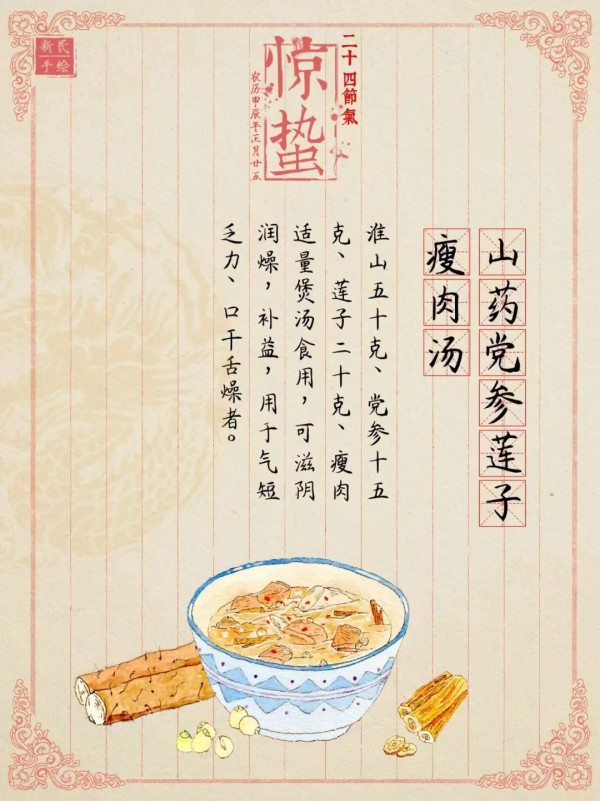 新民
手绘
二十四節氣
惊蛰
农历甲辰年正月廿五
山药党参莲子
瘦肉汤
淮山五十克、党参十五
克、莲子二十克、瘦肉
适量煲汤食用，可滋阴
润燥，补益，用于气短
乏力、口干舌燥者。